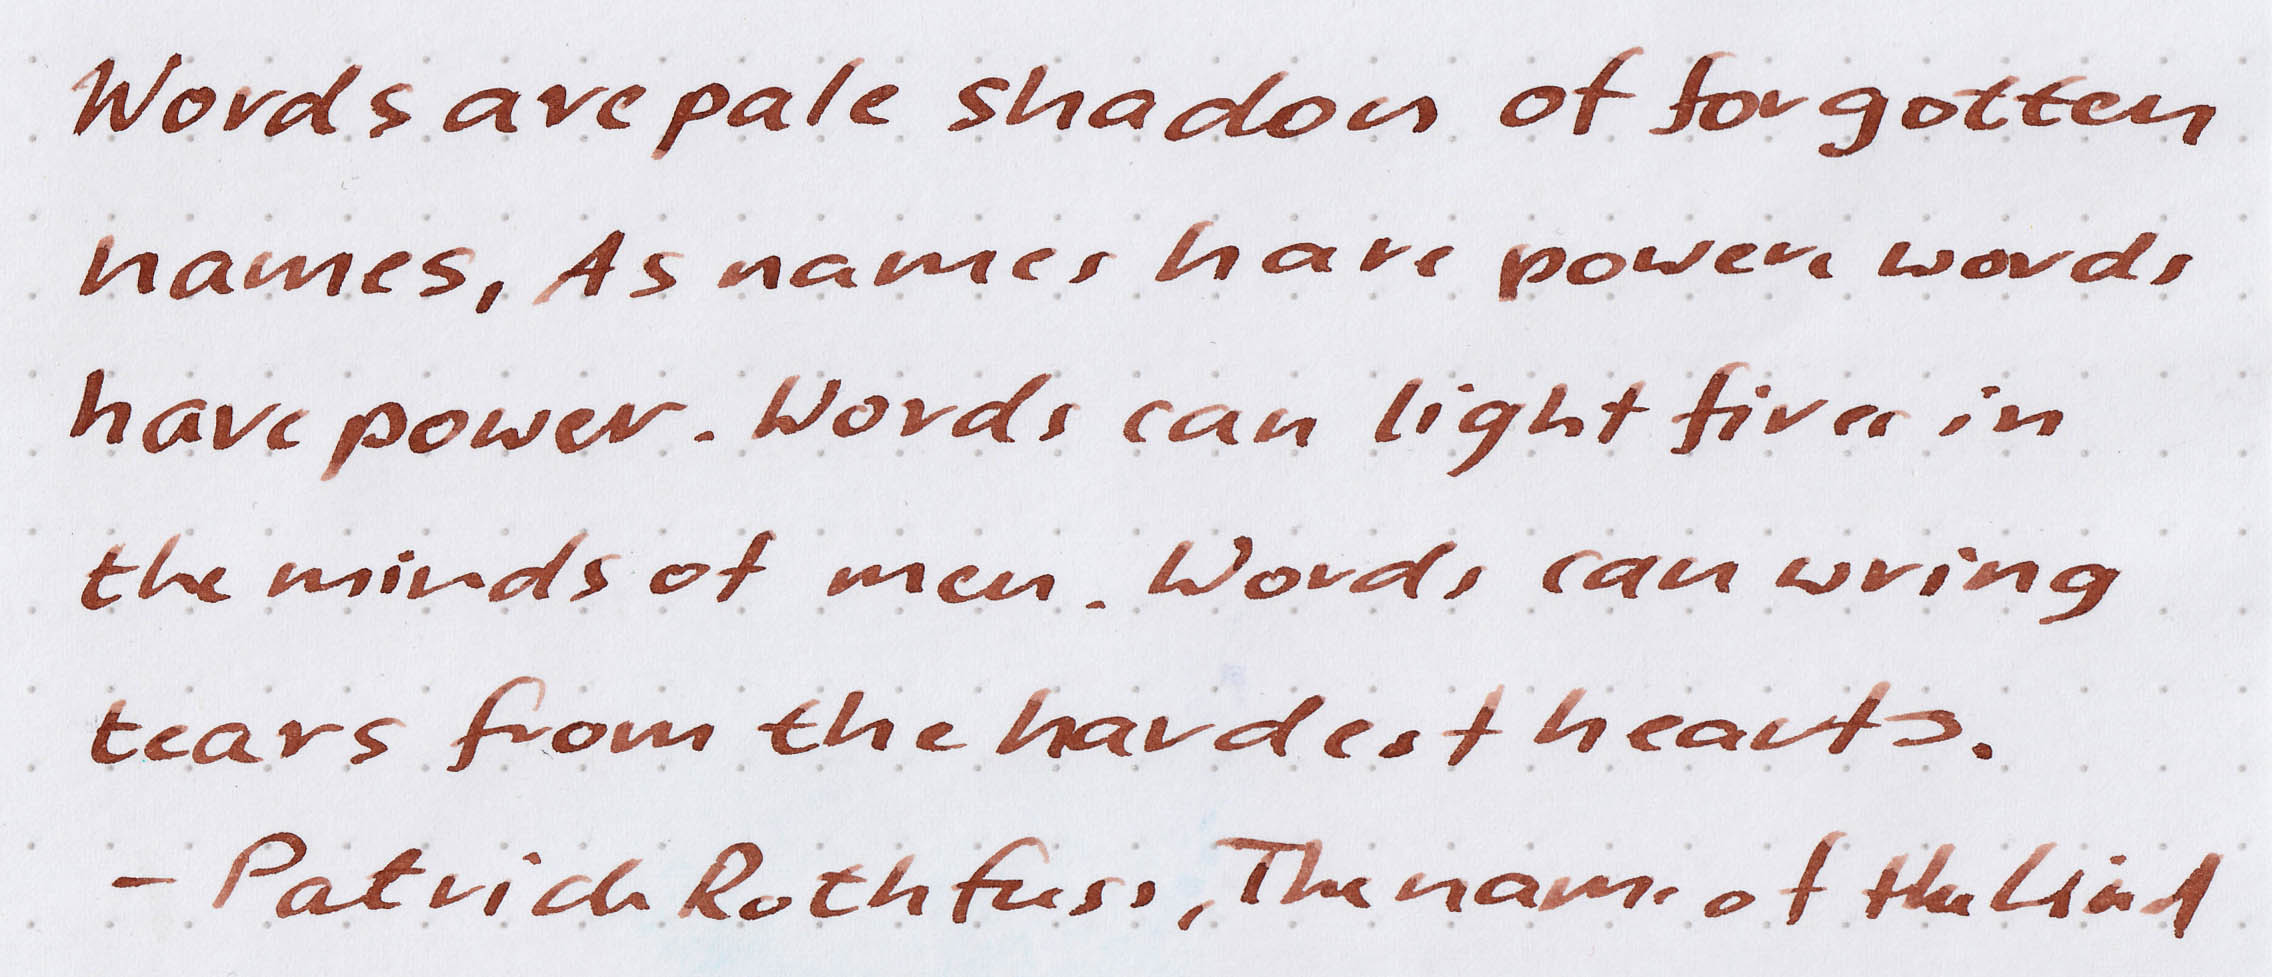 Words are pale shadows of forgotten
names, As names have power, words
have power. Words can light fires in
the minds of men. Words can wring
tears from the hardest hearts.
- Patrick Rothfuss, The name of the Wind